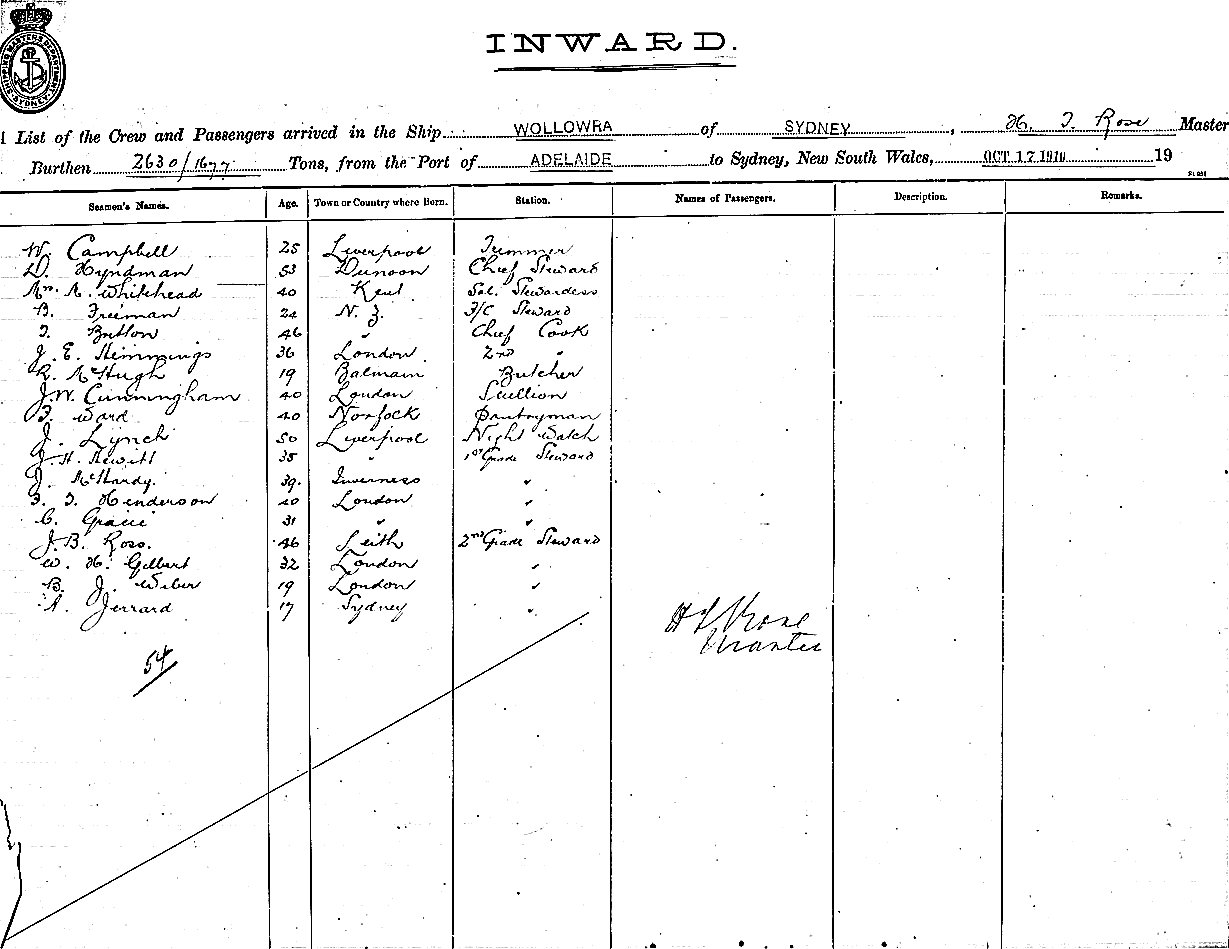 SHIPPING MASTER'S DEPARTMENT SYDNEY
INWARD.
List of the Crew and Passengers arrived in the Ship WOLLOWRA of SYDNEY, H. J. Rose Master
Burthen 2630/1677 Tons, from the Port of ADELAIDE to Sydney, New South Wales, OCT 17 1910 19
Seamen's Names. Age. Town or Country where Born. Station. Names of Passengers. Description. Remarks.
W. Campbell 25 Liverpool Trimmer
D. Hyndman 53 Dunoon Chief Steward
Mrs. A. Whitehead 40 Kent Sal. Stewardess
B. Freeman 24 N. Z. F/C Steward
T. Britton 46 " Chief Cook
J. E. Hemmings 36 London 2nd "
R. McHugh 19 Balmain Butcher
J. W. Cunningham 40 London Scullion
Ward 40 Norfolk Pantryman
J. Lynch 50 Liverpool Night Watch
J. H. Hewitt 35 " 1st Grade Steward
J. McHardy. 39. Inverness "
J. Henderson 40 London "
C. Gracie 31 " "
J. B. Ross. 46 Leith 2nd Grade Steward
W. H. Gilbert 32 London "
B. J. Weber 19 London "
A. Jerrard 17 Sydney "
H J Rose
Master
54